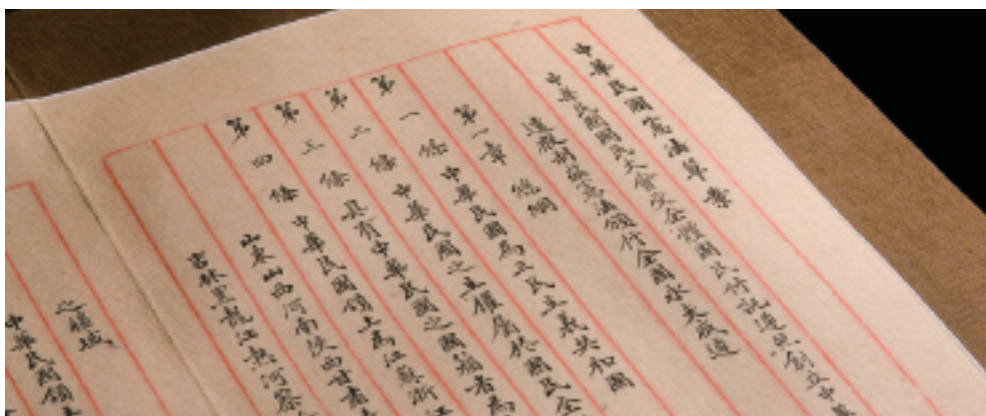 中華民國憲法草案
中華民國國民大會受全體國民付託遵照創立中
遺教制茲憲法頒行全國永矢咸遵
第一章 總綱
第一條 中華民國為三民主義共和國
第二條 中華民國之主權屬於國民全
第三條 具有中華民國之國籍者為
第四條 中華民國領土為江蘇浙江
山東山西河南陝西甘肅
吉林黑龍江熱河察
之領域
中華民國領土